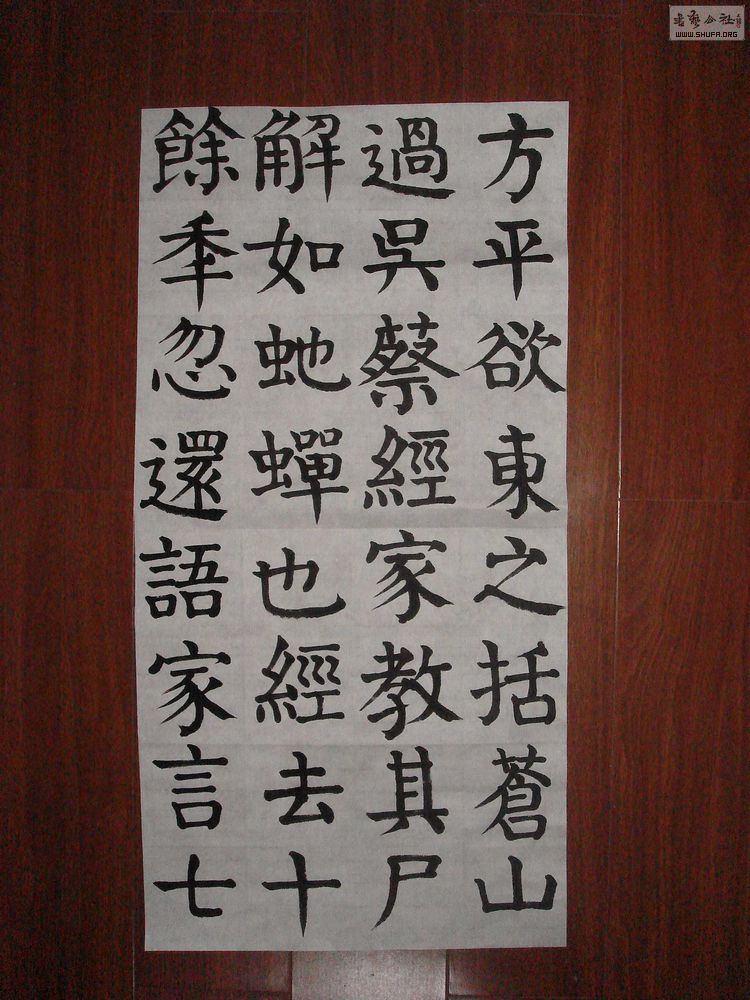 方平欲東之括蒼山
過吳蔡經家教其尸
解如虵蟬也經去十
餘秊忽還語家言七
WWW.SHUFA.ORG